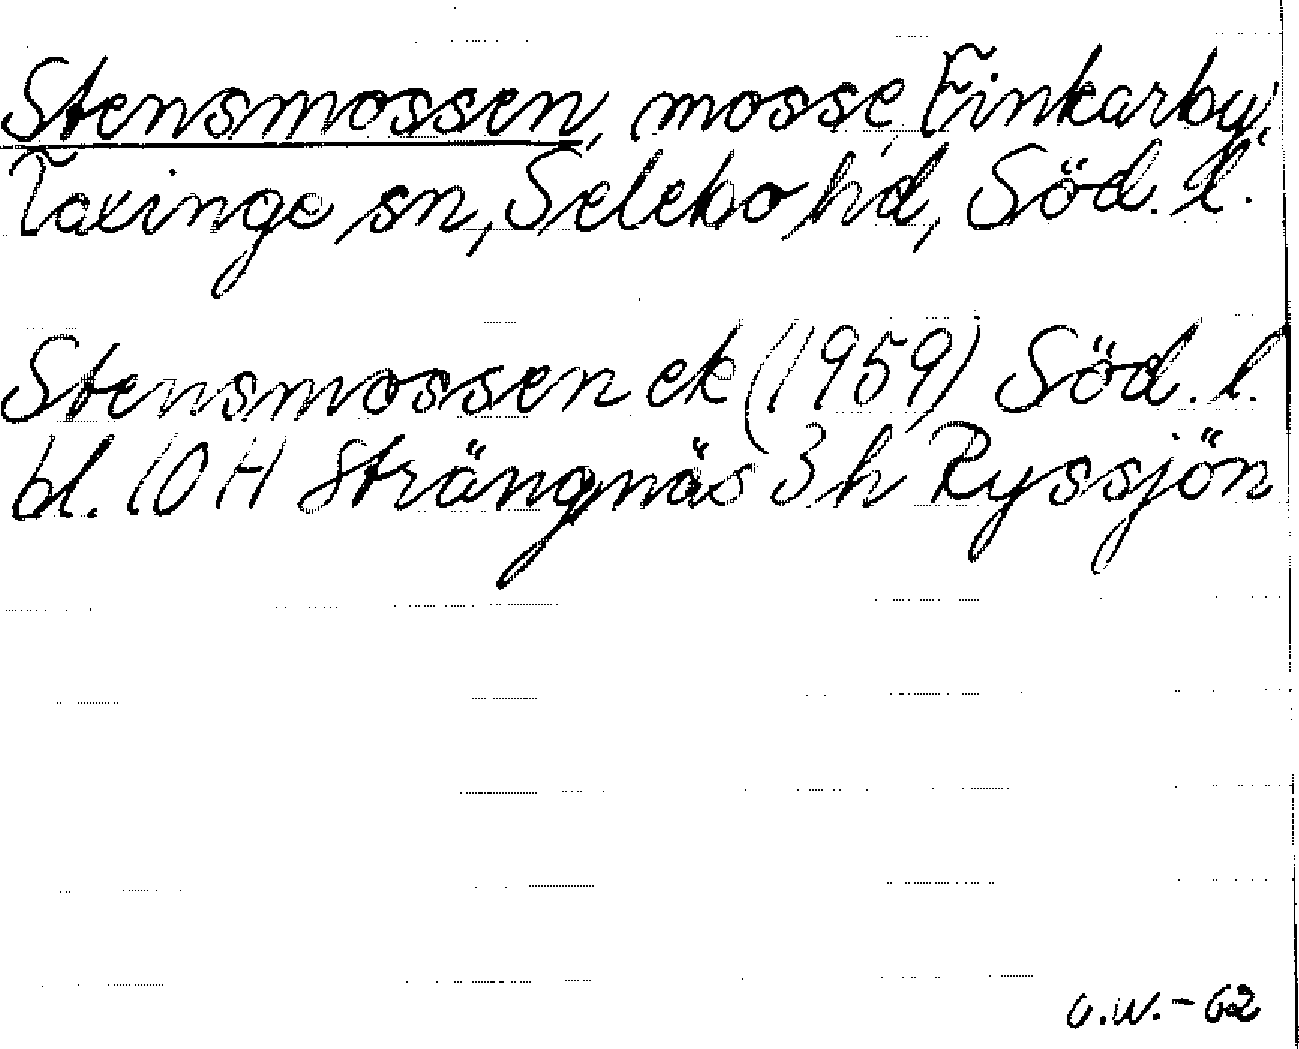 Stensmossen, mosse, Finkarby,
Taxinge sn, Selebo hd, Söd. l.
Stensmossen ek (1959) Söd. l.
bl. 10 H Strängnäs 3 h Ryssjön
O.W. - 62